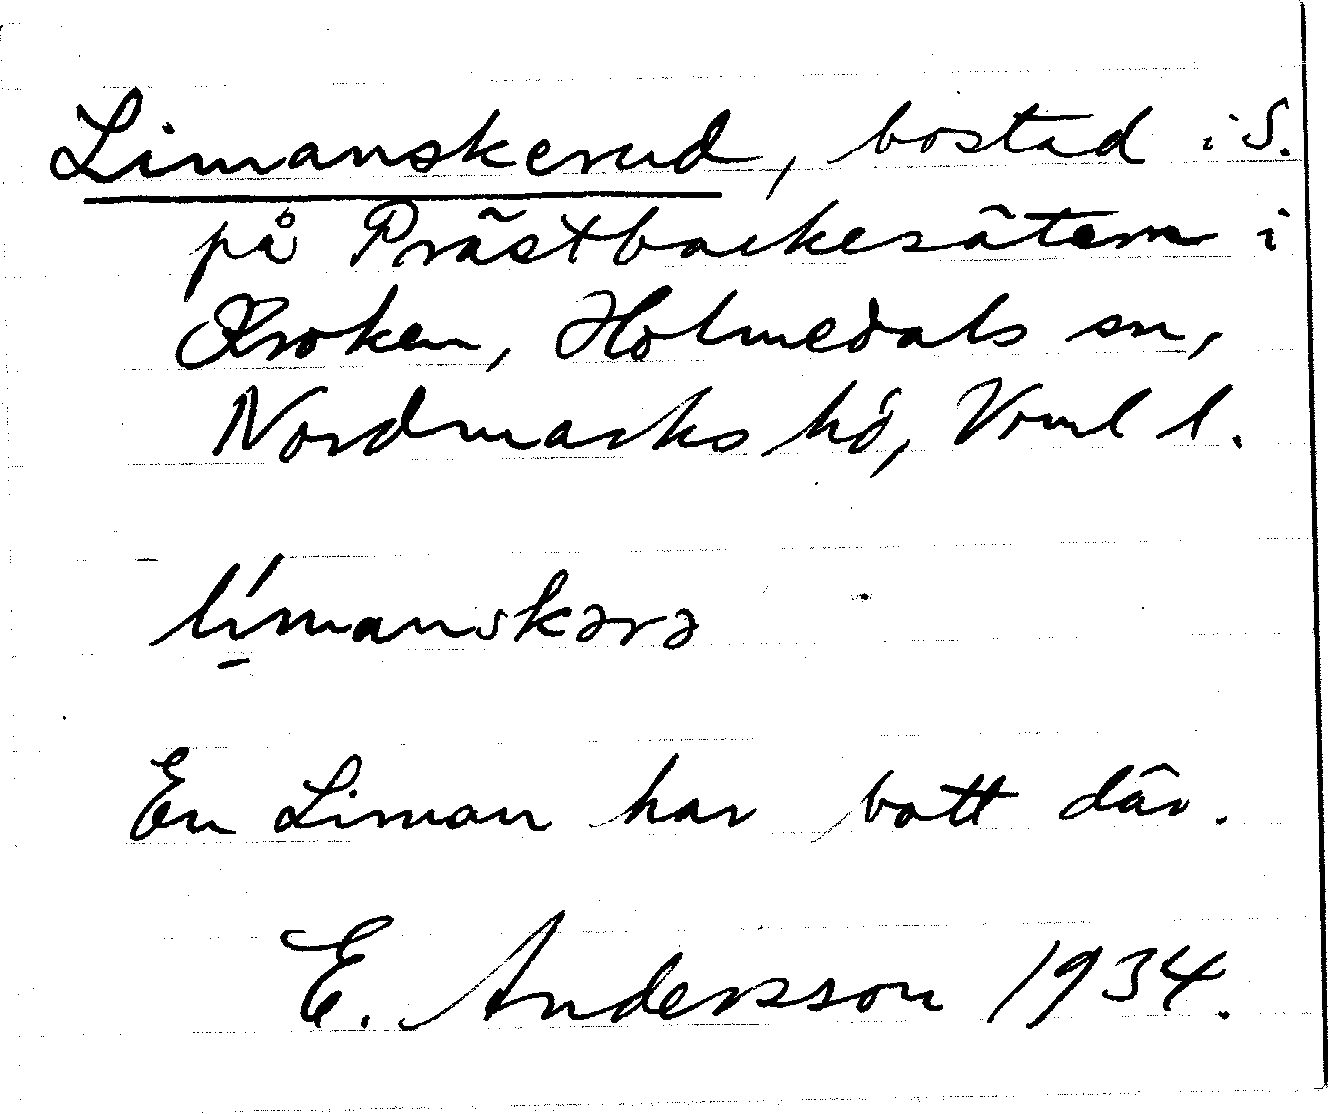 Limanskerud, bostad i S.
på Prästbackesätern i
Kroken, Holmedals sn,
Nordmarks hd, Vrml l.
lı́manskərə
En Liman har bott där.
E. Andersson 1934.